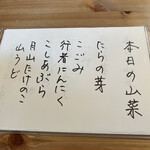 本日の山菜
たらの芽
こごみ
行者にんにく
こしあぶら
月山たけのこ
山うど